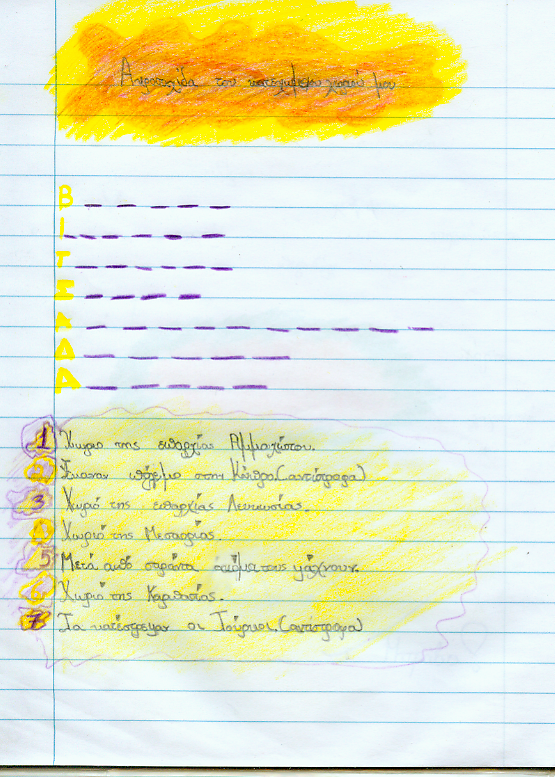 Ακροστιχίδα του κατεχόμενου χωριού μου
Β _ _ _ _ _
Ι _ _ _ _ _ _
Τ _ _ _ _ _ _
Σ _ _ _ _
Α _ _ _ _ _ _ _ _ _
Δ _ _ _ _ _
Α _ _ _ _ _
1 Χωριό της επαρχίας Αμμοχώστου.
2 Έκαναν πόλεμο στην Κύπρο.(αντίστροφα)
3 Χωριό της επαρχίας Λευκωσίας.
4 Χωριό της Μεσαορίας.
5 Μετά από σαράντα ακόμα τους ψάχνουν.
6 Χωριό της Καρπασίας.
7 Τα κατέστρεψαν οι Τούρκοι.(αντίστροφα)